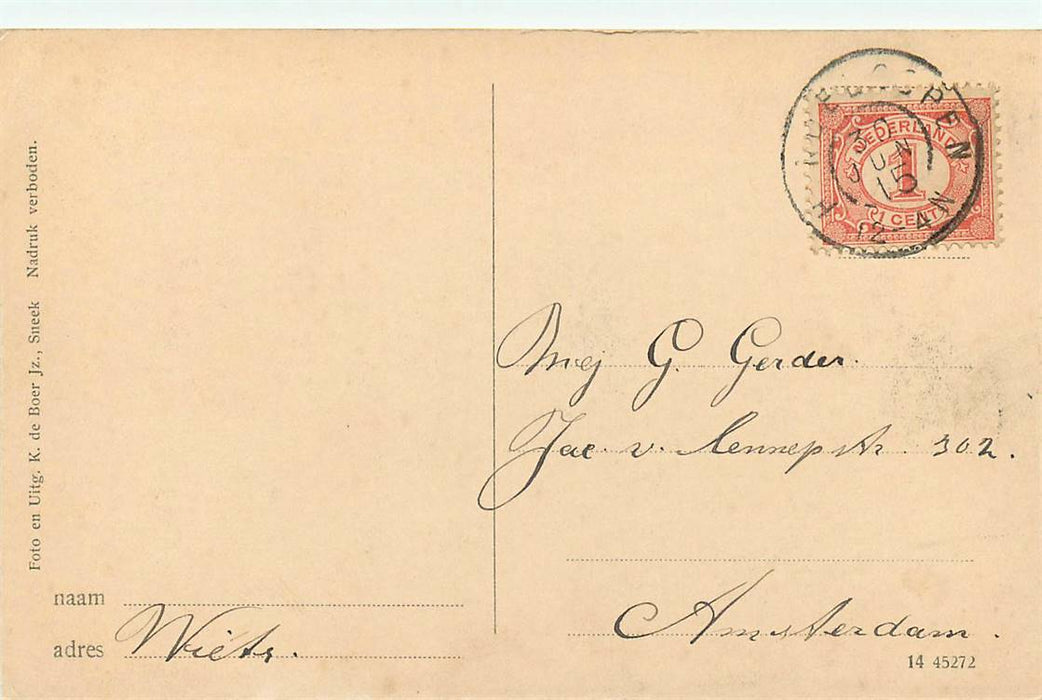 Foto en Uitg. K. de Boer Jz., Sneek Nadruk verboden.
HINDELOOPEN
30
JUN
15
12-4N
NEDERLAND
1
1 CENT
Mej G. Gerder.
Jac v. Lennepstr. 302.
Amsterdam.
naam
adres Wiets.
14 45272